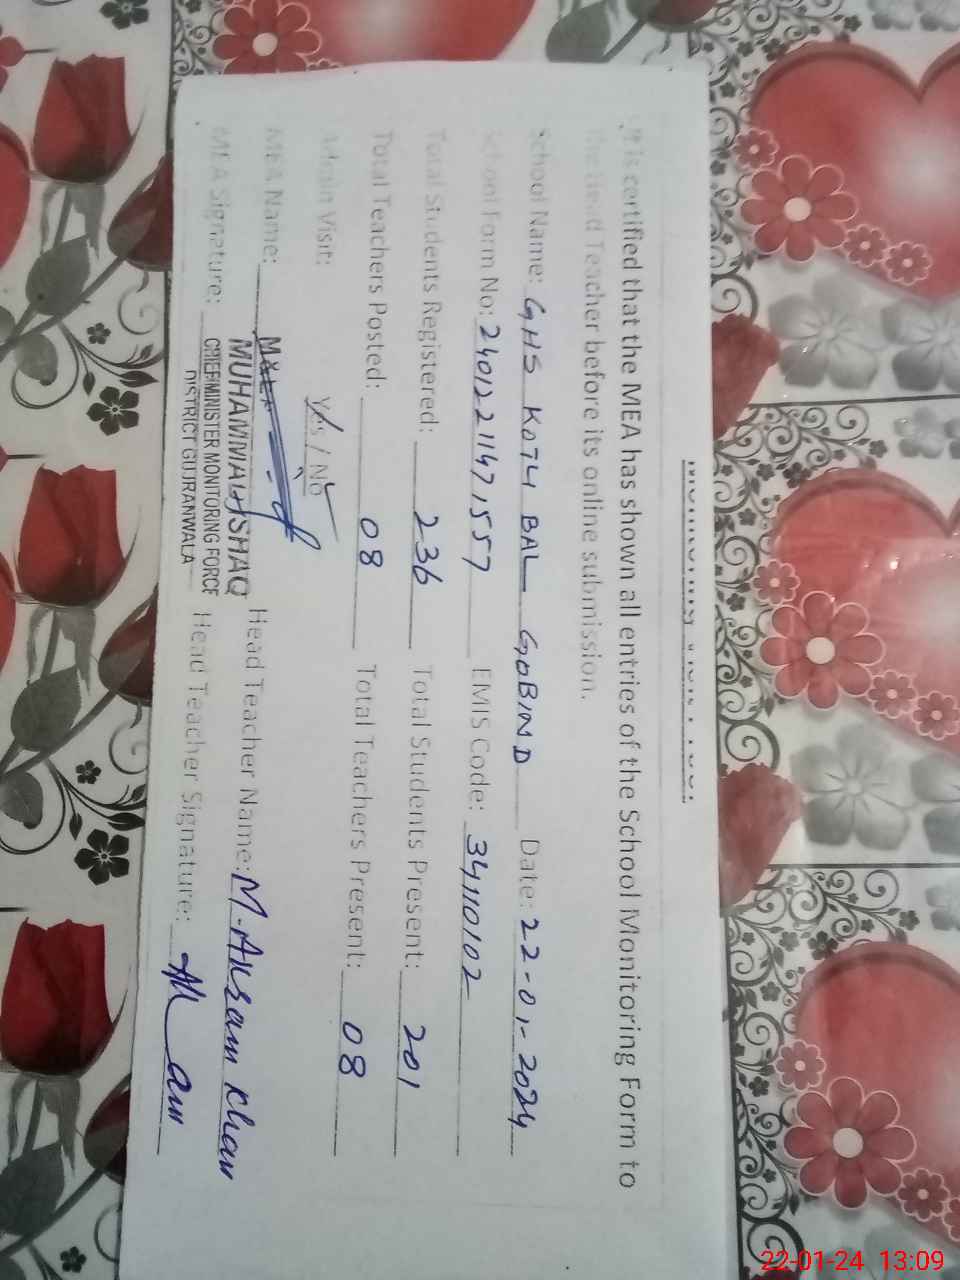 It is certified that the MEA has shown all entries of the School Monitoring Form to
the Head Teacher before its online submission.
School Name: GHS KOTLI BAL GOBIND Date: 22-01-2024
School Form No: 2401221147157 EMIS Code: 34110102
Total Students Registered: 236 Total Students Present: 201
Total Teachers Posted: 08 Total Teachers Present: 08
Admin Visit: Yes / No
MEA Name: MUHAMMAD ISHAQ Head Teacher Name: M. Akram Khan
CHIEF MINISTER MONITORING FORCE
MEA Signature: Head Teacher Signature:
DISTRICT GUJRANWALA
22-01-24 13:09